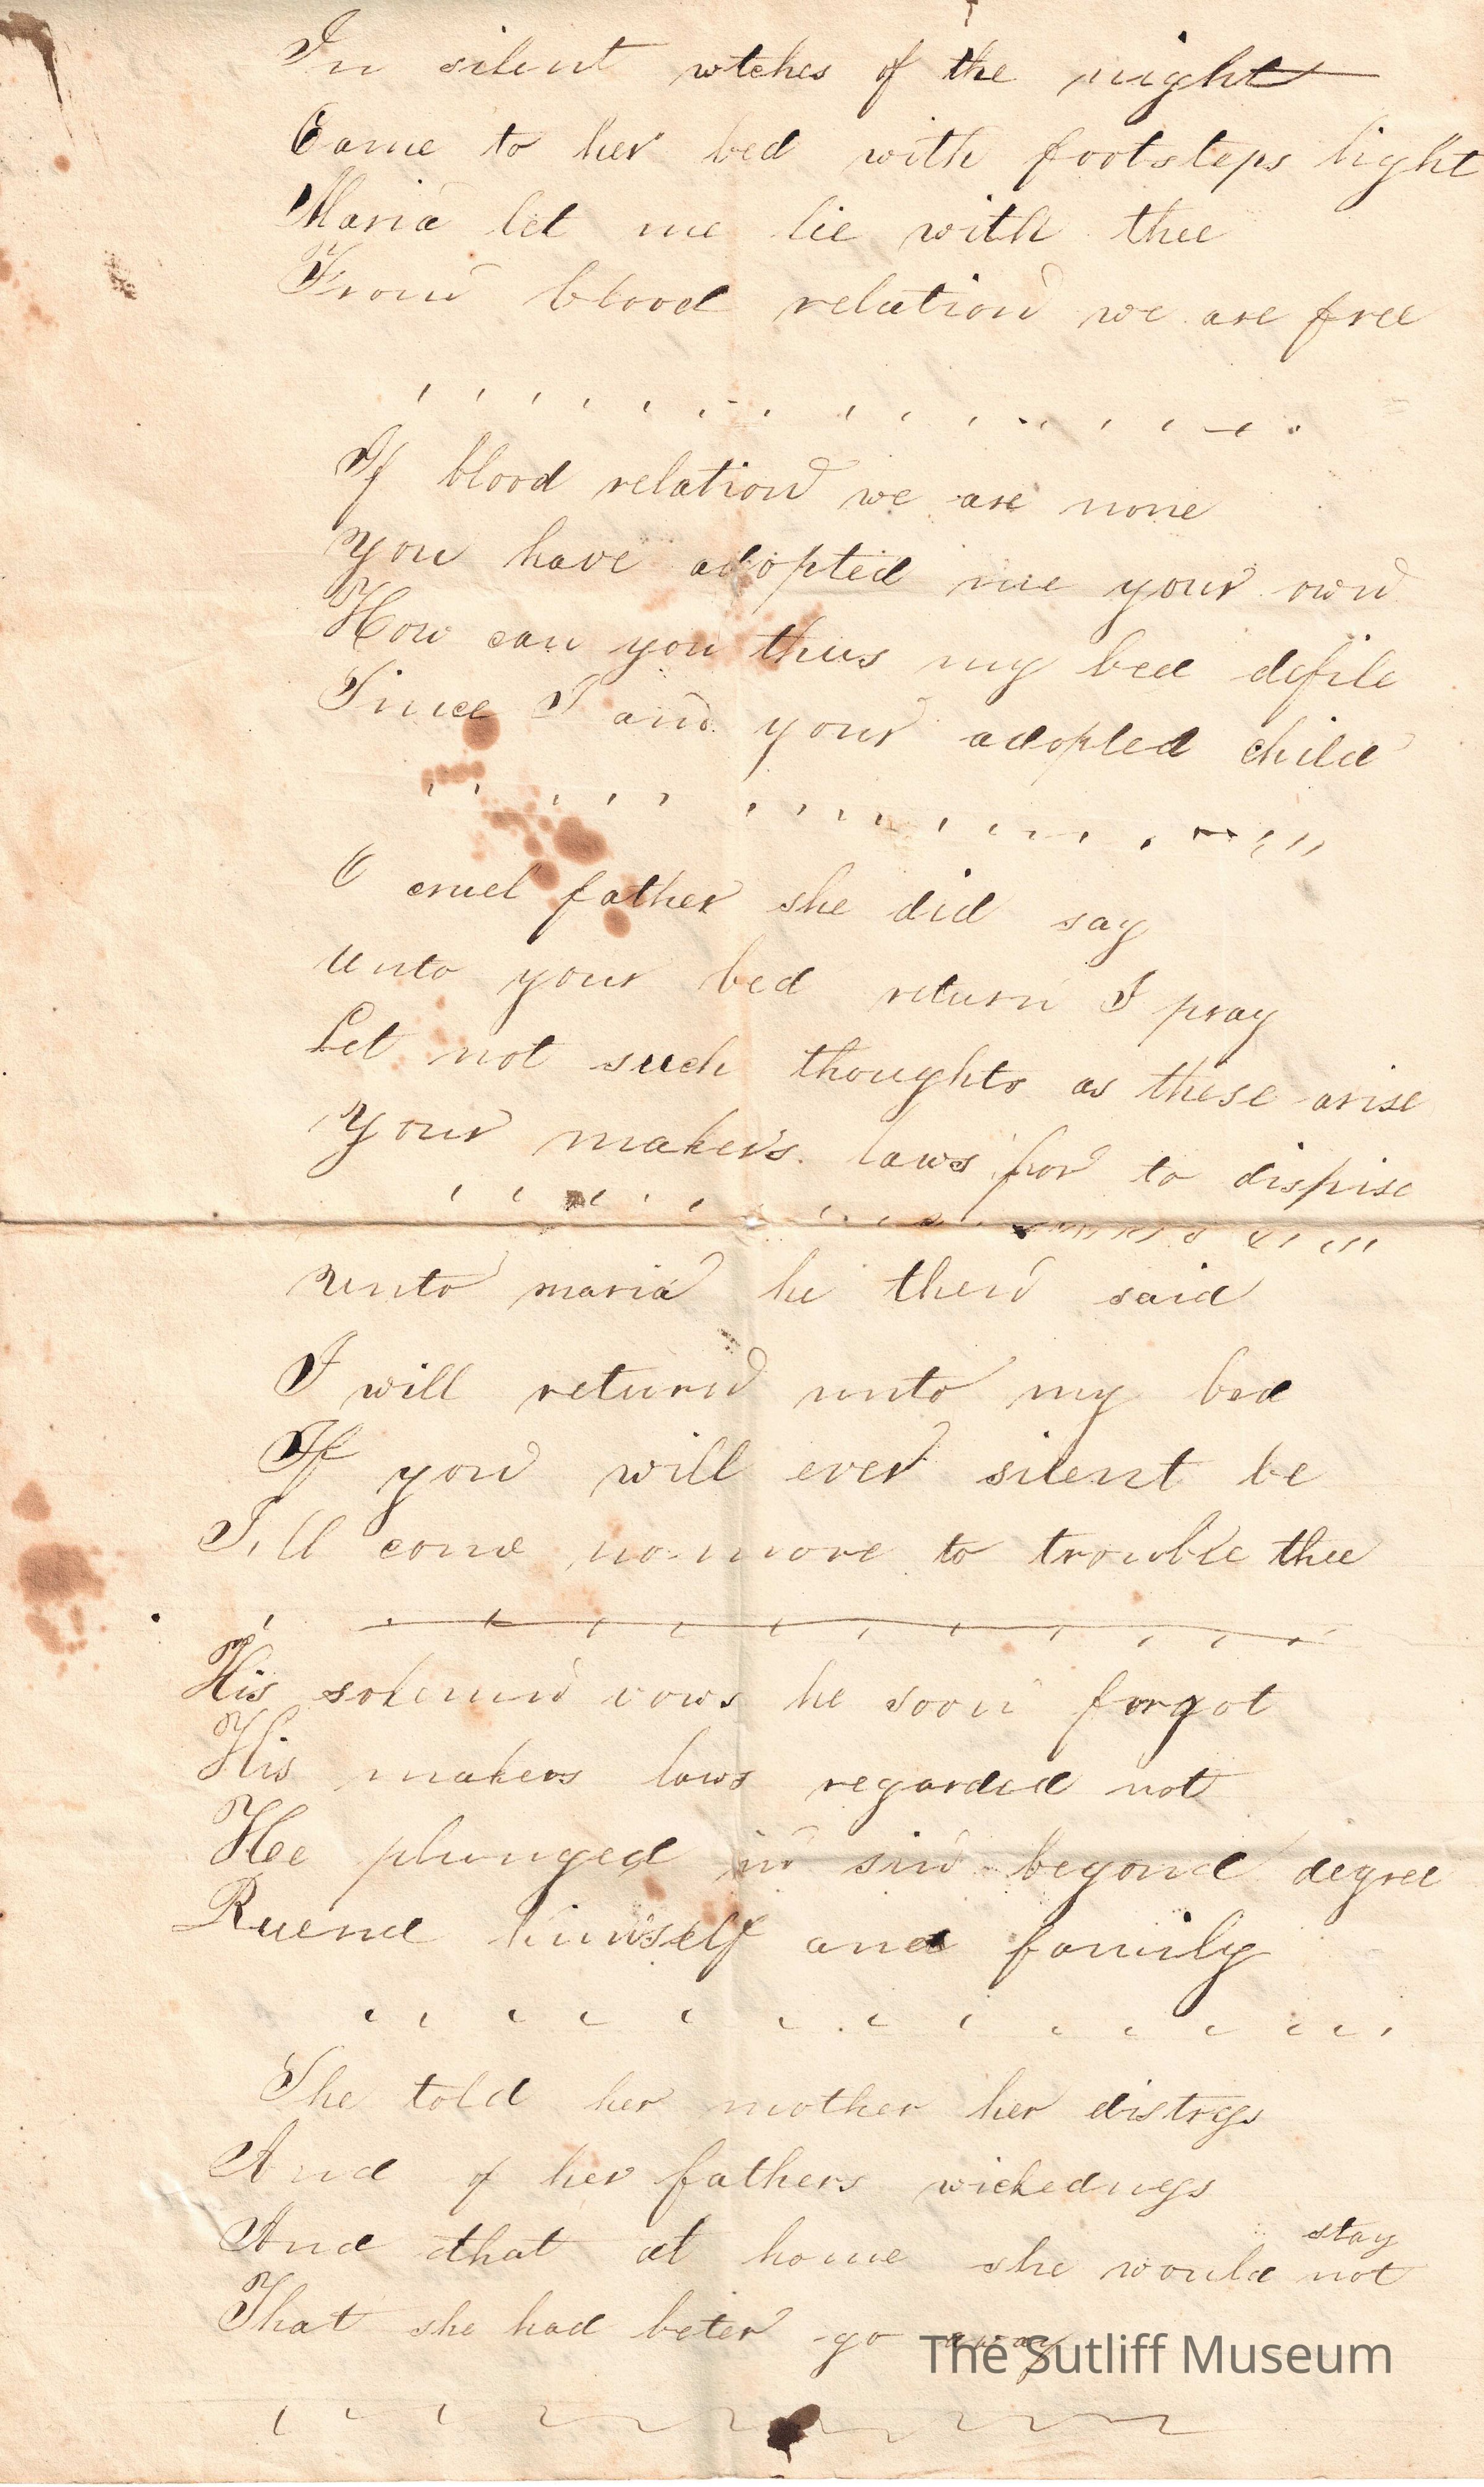 In silent wtches of the night
Came to her bed with footsteps light
Maria let me lie with thee
From blood relation we are free
If blood relation we are none
You have adopted me your own
How can you thus my bed defile
Since I am your adopted child
O cruel father she did say
Unto your bed return I pray
Let not such thoughts as these arise
Your maker's laws for to dispise
Unto maria he then said
I will return unto my bed
If you will ever silent be
I,ll come no more to trouble thee
His solemn vows he soon forgot
His makers laws regarded not
Hee plunged in sin beyond degree
Ruend himself and family
She told her mother her distress
And of her fathers wickedness
And that at home she would not stay
That she had beter go away
The Sutliff Museum